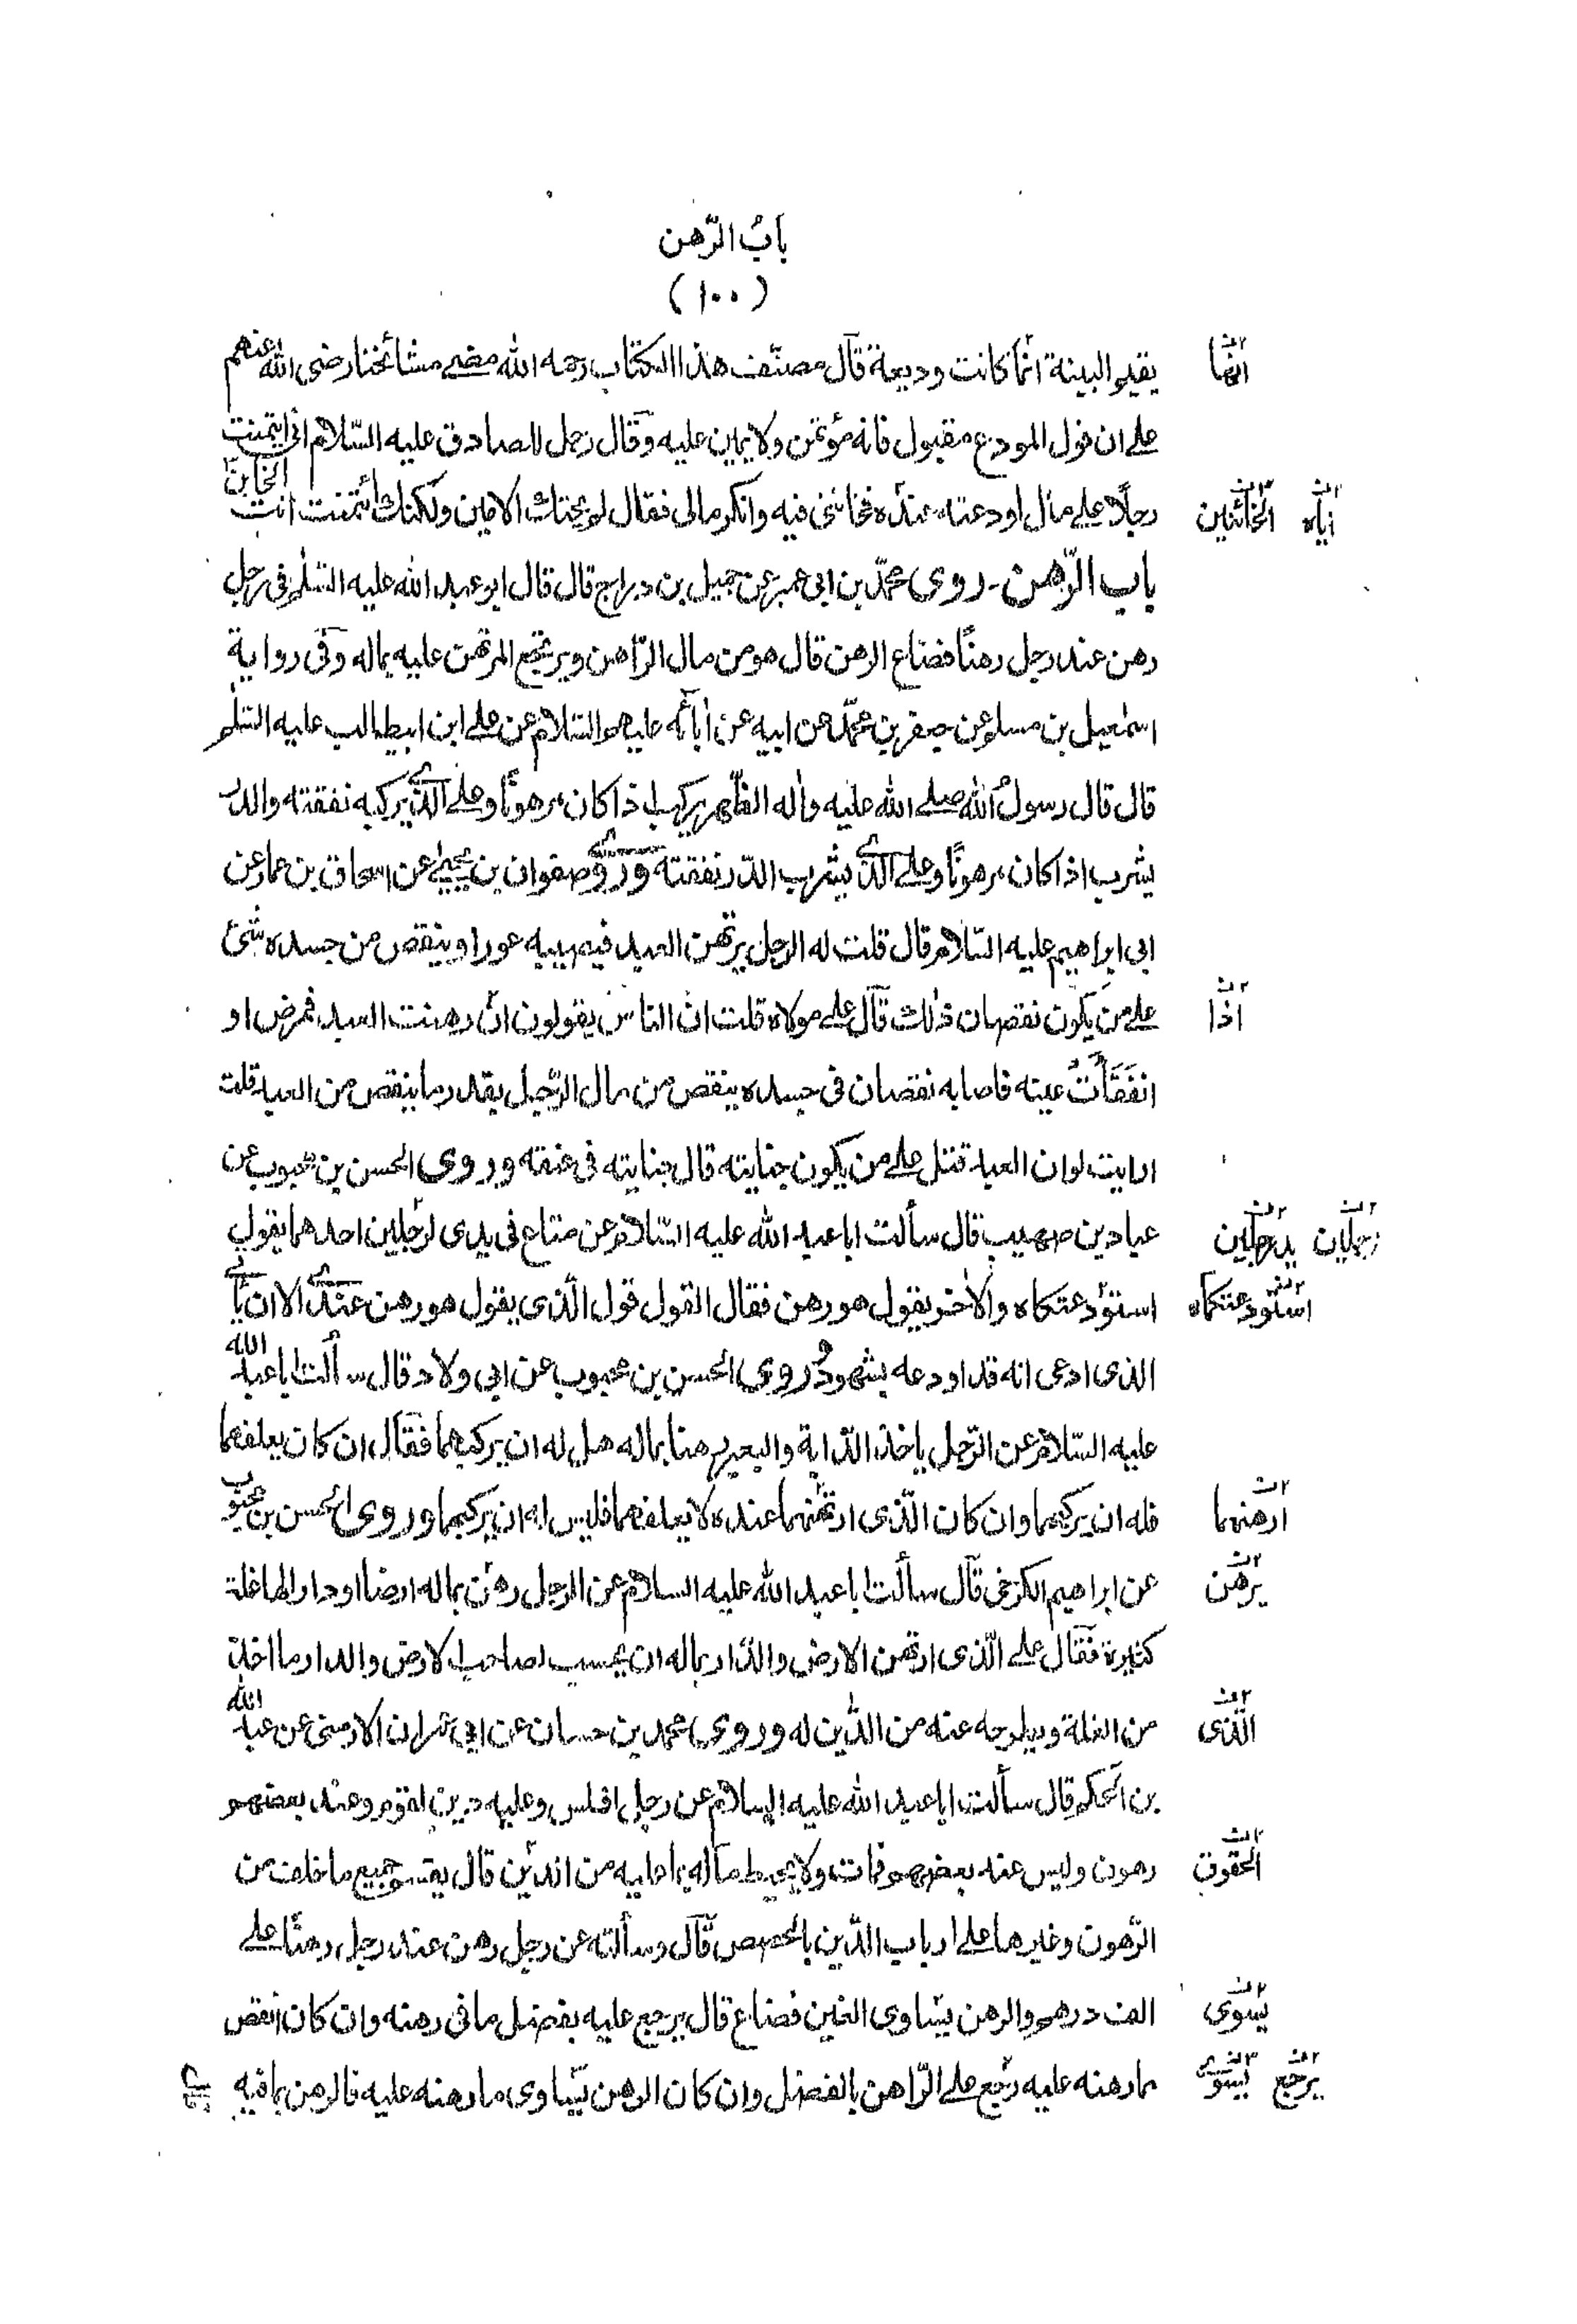 بابُ الرّهن
(١٠٠)
يقيم البينة انّما كانت وديعة قال مصنّف هذا الكتاب رحمه الله مضى مشائخنا رضى الله عنهم
على ان قول المودع مقبول فانه مؤتمن ولا يمين عليه وقال رجل للصادق عليه السّلام انى ائتمنت
رجلًا على مال اودعته عنده فخاننى فيه وانكر مالى فقال لم يخنك الامين ولكنك ائتمنت انت الخاين
باب الرّهن - روى محمّد بن ابى عمير عن جميل بن دراج قال قال ابو عبد الله عليه السّلم فى رجل
رهن عند رجل رهنًا فضاع الرهن قال هو من مال الرّاهن ويرتجع المرتهن عليه بماله وفى رواية
اسمٰعيل بن مسلم عن جعفر بن محمّد عن ابيه عن اٰبائه عليهم السّلام عن على ابن ابيطالب عليه السّلم
قال قال رسول الله صلى الله عليه واٰله الظّهر يركب اذا كان مرهونًا وعلى الّذى يركبه نفقته والدر
يشرب اذا كان مرهونًا وعلى الّذى يشرب الدّر نفقته وروى صفوان بن يحيىٰ عن اسحاق بن عمار عن
ابى ابراهيم عليه السّلام قال قلت له الرجل يرتهن العبد فيصيبه عور او ينقص من جسده شئ
على من يكون نقصان ذٰلك قال على مولاه قلت انّ الناس يقولون ان رهنت العبد فمرض او
انفقات عينه فاصابه نقصان فى جسده ينقص من مال الرّجل بقدر ما ينقص من العبد قلت
ارايت لو ان العبد قتل على من يكون جنايته قال جنايته فى عنقه وروى الحسن بن محبوب عن
عباد بن صهيب قال سألت ابا عبد الله عليه السّلام عن متاع فى يدى لرجلين احدهما يقول
استودعتكاه والاٰخر يقول هو رهن فقال القول قول الّذى يقول هو رهن عندى الا ان يأتى
الذى ادعى انه قد اودعه بشهود وروى الحسن بن محبوب عن ابى ولاد قال سألت ابا عبد الله
عليه السّلام عن الرّجل ياخذ الدّابة والبعير رهنا بماله هل له ان يركبهما فقال ان كان يعلفهما
فله ان يركبهما وان كان الّذى ارتهنهما عنده لا يعلفهما فليس له ان يركبهما وروى الحسن بن محبوب
عن ابراهيم الكرخى قال سألت ابا عبد الله عليه السلام عن الرجل رهن بماله ارضا او دارا لها غلة
كثيرة فقال على الّذى ارتهن الارض والدّار بماله ان يحسب لصاحب الارض والدار ما اخذ
من الغلة ويطرحه عنه من الدّين له وروى محمد بن حسان عن ابى عمران الارمنى عن عبد الله
بن الحكم قال سألت ابا عبد الله عليه السلام عن رجل افلس وعليه دين لقوم وعند بعضهم
رهون وليس عند بعضهم فمات ولا يحيط ماله بما عليه من الدين قال يقسم جميع ما خلف من
الرّهون وغيرها على ارباب الدّين بالحصص قال وسألته عن رجل رهن عند رجل رهنًا على
الف درهم والرهن يساوى الفين فضاع قال يرجع عليه بفضل ما فى رهنه وان كان انقص
مما رهنه عليه رجع على الرّاهن بالفضل وان كان الرهن يسّاوى ما رهنه عليه فالرهن بما فيه
انها
الخائنين
اذا
يد رجلين
رجلان
استودعتكماه
ارهنهما
يرهن
الّذى
الحقوق
يسوى
يرجع
يسوى